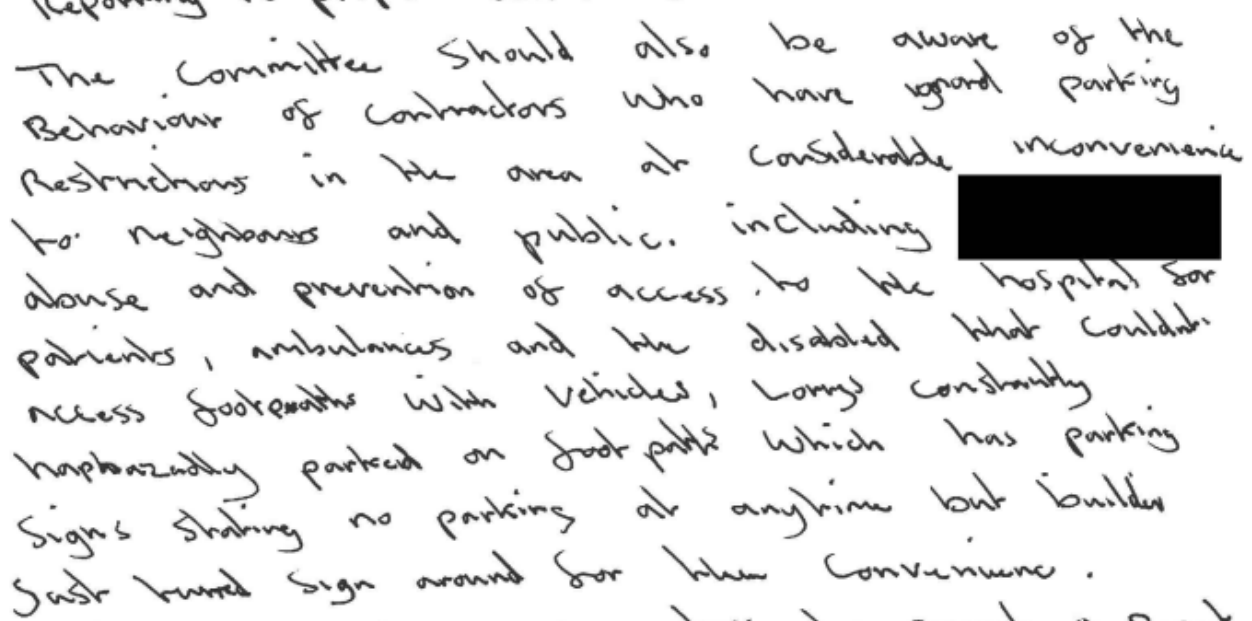 Reporting to
The Committee Should also be aware of the
Behaviour of contractors who have ignord parking
Restrictions in the area at considerable inconvenience
to neighbours and public. including
abuse and prevention of access. to the hospital for
patients, ambulances and the disabled that couldnt
access footpaths with vehicles, Lorrys constantly
haphazadly parked on foot paths which has parking
Signs stating no parking at anytime but builder
Just turned Sign around for their Convenience.